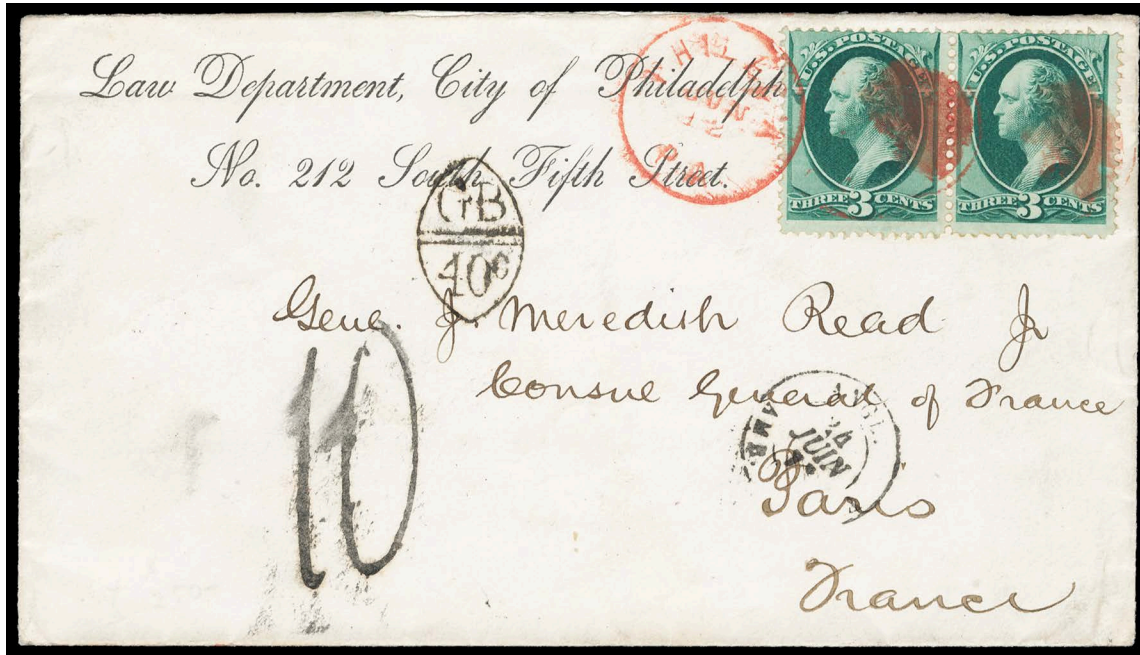 Law Department, City of Philadelph
No. 212 South Fifth Street.
PHILA
JUN
12
PA
U.S. POSTAGE
THREE 3 CENTS
U.S. POSTAGE
THREE 3 CENTS
GB
40c
Genl. J. Meredith Read Jr
Consul General of France
Paris
France
10
ANGL.
AMB.
24
JUIN